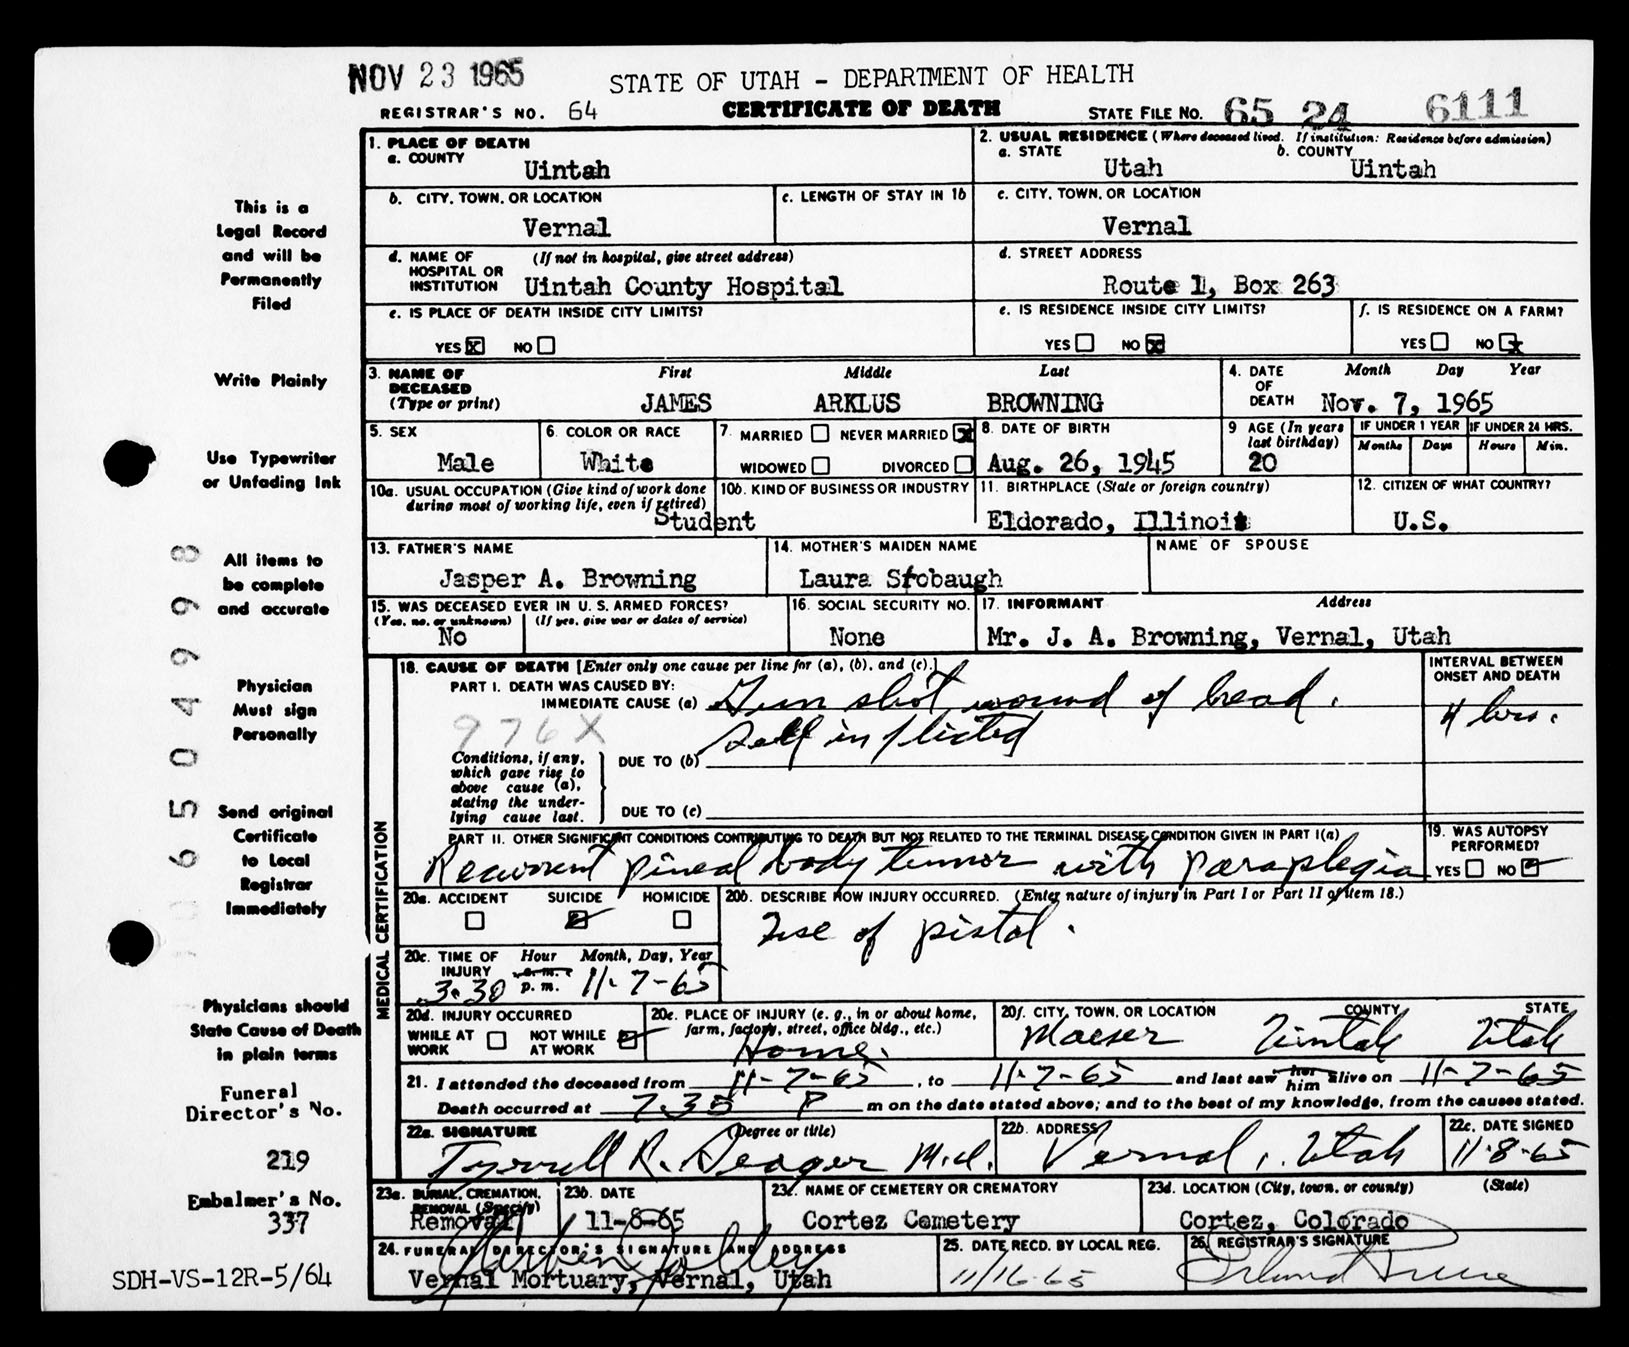 NOV 23 1965
STATE OF UTAH - DEPARTMENT OF HEALTH
REGISTRAR'S NO. 64
CERTIFICATE OF DEATH
STATE FILE NO. 65 24 6111
1. PLACE OF DEATH
a. COUNTY
Uintah
2. USUAL RESIDENCE (Where deceased lived. If institution: Residence before admission)
a. STATE b. COUNTY
Utah Uintah
b. CITY, TOWN, OR LOCATION
Vernal
c. LENGTH OF STAY IN 1b
c. CITY, TOWN, OR LOCATION
Vernal
d. NAME OF (If not in hospital, give street address)
HOSPITAL OR
INSTITUTION Uintah County Hospital
d. STREET ADDRESS
Route 1, Box 263
e. IS PLACE OF DEATH INSIDE CITY LIMITS?
YES X NO
e. IS RESIDENCE INSIDE CITY LIMITS?
YES NO X
f. IS RESIDENCE ON A FARM?
YES NO X
3. NAME OF First Middle Last
DECEASED
(Type or print) JAMES ARKLUS BROWNING
4. DATE Month Day Year
OF
DEATH Nov. 7, 1965
5. SEX
Male
6. COLOR OR RACE
White
7. MARRIED NEVER MARRIED X
WIDOWED DIVORCED
8. DATE OF BIRTH
Aug. 26, 1945
9 AGE (In years
last birthday)
20
IF UNDER 1 YEAR
Months Days
IF UNDER 24 HRS.
Hours Min.
10a. USUAL OCCUPATION (Give kind of work done
during most of working life, even if retired)
Student
10b. KIND OF BUSINESS OR INDUSTRY
11. BIRTHPLACE (State or foreign country)
Eldorado, Illinois
12. CITIZEN OF WHAT COUNTRY?
U.S.
13. FATHER'S NAME
Jasper A. Browning
14. MOTHER'S MAIDEN NAME
Laura Stobaugh
NAME OF SPOUSE
15. WAS DECEASED EVER IN U.S. ARMED FORCES?
(Yes, no, or unknown) (If yes, give war or dates of service)
No
16. SOCIAL SECURITY NO.
None
17. INFORMANT Address
Mr. J. A. Browning, Vernal, Utah
MEDICAL CERTIFICATION
18. CAUSE OF DEATH [Enter only one cause per line for (a), (b), and (c).]
PART I. DEATH WAS CAUSED BY:
IMMEDIATE CAUSE (a) Gun shot wound of head.
976X
Self inflicted
Conditions, if any,
which gave rise to
above cause (a),
stating the under-
lying cause last.
DUE TO (b)
DUE TO (c)
INTERVAL BETWEEN
ONSET AND DEATH
4 hrs.
PART II. OTHER SIGNIFICANT CONDITIONS CONTRIBUTING TO DEATH BUT NOT RELATED TO THE TERMINAL DISEASE CONDITION GIVEN IN PART I(a)
Recurrent pineal body tumor with paraplegia
19. WAS AUTOPSY
PERFORMED?
YES NO
20a. ACCIDENT SUICIDE HOMICIDE
20b. DESCRIBE HOW INJURY OCCURRED. (Enter nature of injury in Part I or Part II of item 18.)
Use of pistol.
20c. TIME OF Hour Month, Day, Year
INJURY a.m.
3:30 p.m. 11-7-65
20d. INJURY OCCURRED
WHILE AT WORK NOT WHILE AT WORK
20e. PLACE OF INJURY (e. g., in or about home,
farm, factory, street, office bldg., etc.)
Home.
20f. CITY, TOWN, OR LOCATION COUNTY STATE
Maeser Uintah Utah
21. I attended the deceased from 11-7-65, to 11-7-65 and last saw her him alive on 11-7-65
Death occurred at 7:35 P m on the date stated above; and to the best of my knowledge, from the causes stated.
22a. SIGNATURE (Degree or title)
Tyrrell R. Seager M.d.
22b. ADDRESS
Vernal, Utah
22c. DATE SIGNED
11-8-65
23a. BURIAL, CREMATION,
REMOVAL (Specify)
Removal
23b. DATE
11-8-65
23c. NAME OF CEMETERY OR CREMATORY
Cortez Cemetery
23d. LOCATION (City, town, or county) (State)
Cortez, Colorado
24. FUNERAL DIRECTOR'S SIGNATURE AND ADDRESS
Vernal Mortuary, Vernal, Utah
25. DATE RECD. BY LOCAL REG.
11/16-65
26. REGISTRAR'S SIGNATURE
This is a
Legal Record
and will be
Permanently
Filed
Write Plainly
Use Typewriter
or Unfading Ink
All items to
be complete
and accurate
Physician
Must sign
Personally
Send original
Certificate
to Local
Registrar
Immediately
Physicians should
State Cause of Death
in plain terms
Funeral
Director's No.
219
Embalmer's No.
337
SDH-VS-12R-5/64
6504998